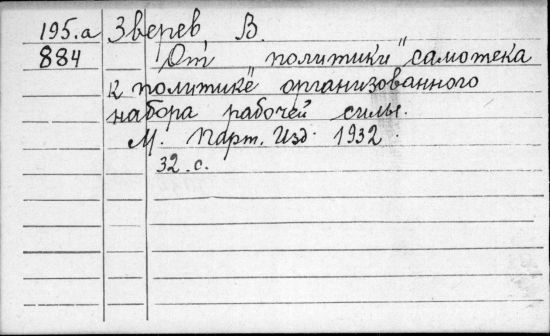 195.а Зверев В.
884 От политики "самотека
к политике" организованного
набора рабочей силы.
М. Парт. Изд. 1932.
32.с.